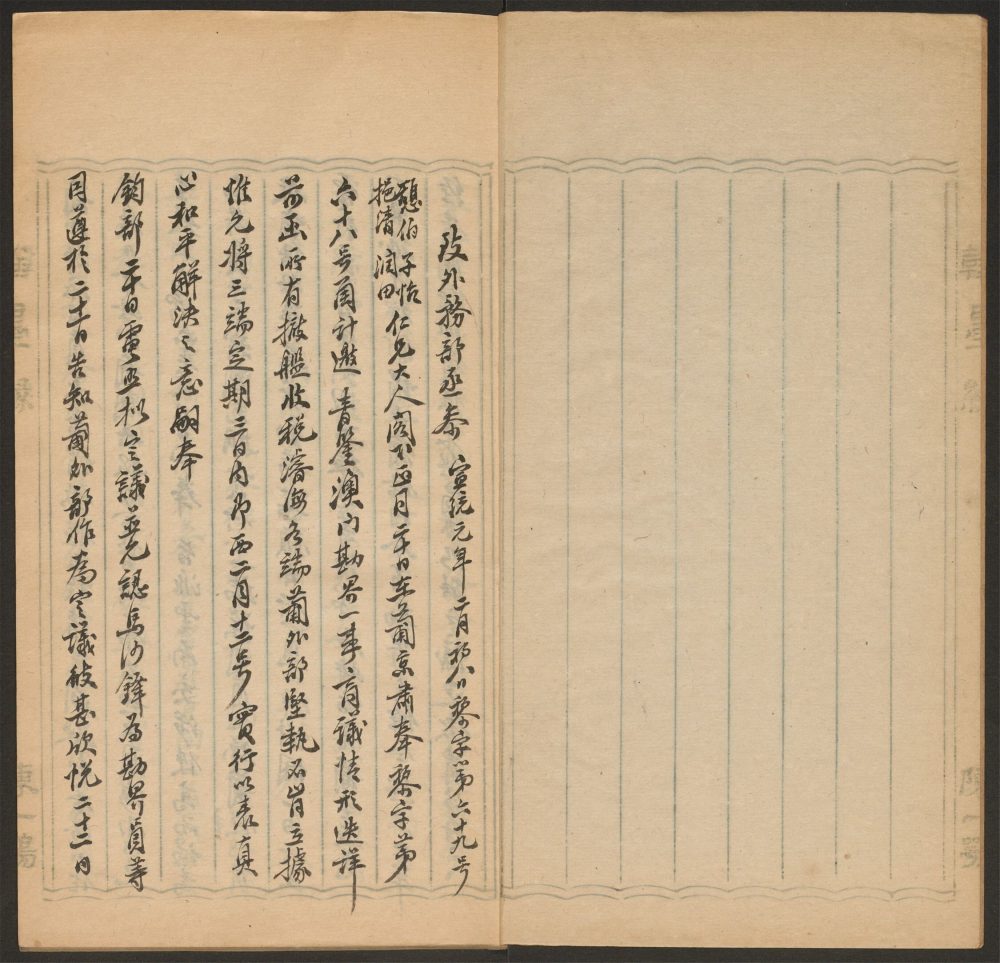 致外務部丞參 宣統元年二月初八日黎字第六十九号
憩伯 子怡
挹清 潤田 仁兄大人閣下正月二十日在葡京肅奉黎字第
六十八号圅計邀 青鑒澳门勘界一事商議情形迭詳
前函所有撤艦收税濬海各端葡外部堅執不肯立據
惟允將三端定期三日内即西二月十二号實行以表真
心和平解決之意嗣奉
鈞部二十日電函拟定議並允認馬沙鐸為勘界員等
因遵於二十一日告知葡外部作為定議彼甚欣悦二十二日